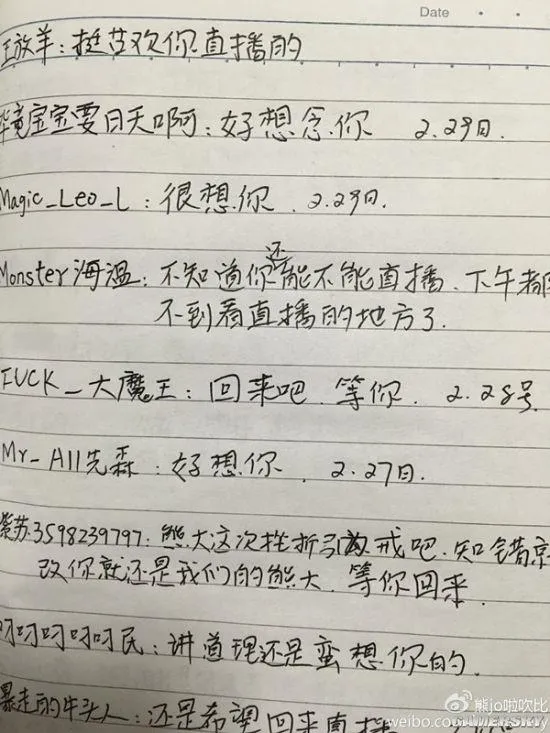 Date
王放羊：挺喜欢你直播的
毕竟宝宝要日天啊：好想念你 2.29日.
Magic_Leo_L：很想你. 2.29日.
Monster海温：不知道你还能不能直播.下午都
不到看直播的地方了.
FUCK_大魔王：回来吧.等你. 2.28号
Mr_All先森：好想你. 2.27日.
紫苏3598239797：熊大这次挫折引以戒吧.知错
改你就还是我们的熊大.等你回来.
叼叼叼叼叼民：讲道理还是蛮想你的.
暴走的牛头人：还是希望回来直播
熊jo啦吹比